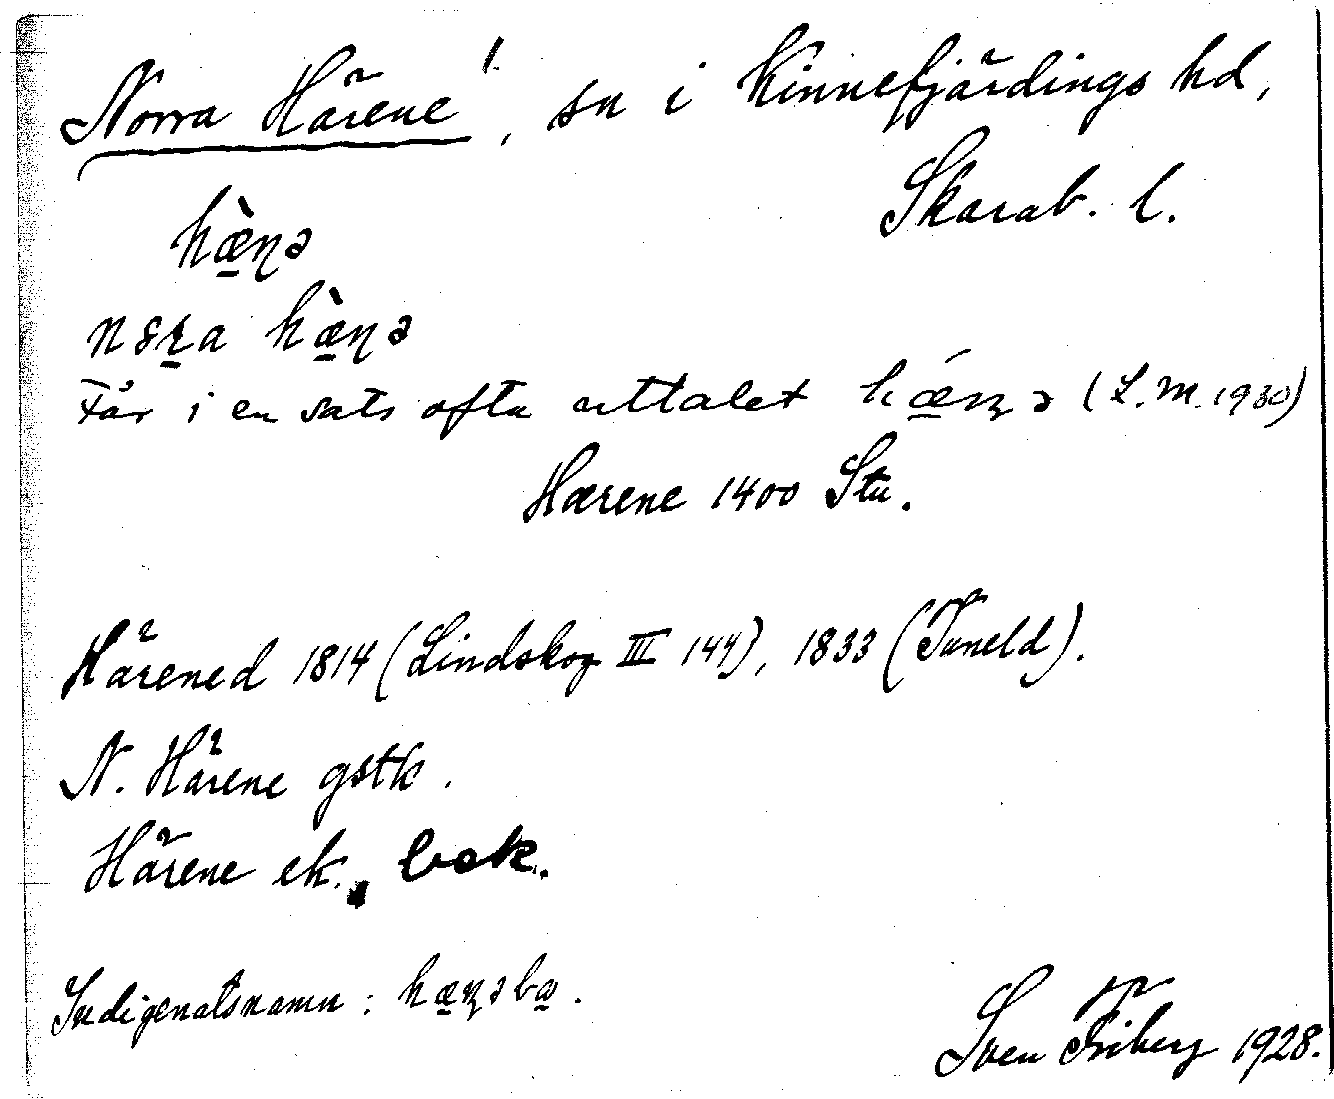 Norra Härene, sn i Kinnefjärdings hd,
Skarab. l.
hæ̀ṇə
nɞra hæ̀ṇə
Får i en sats ofta uttalet hǽṇə (L.M. 1930)
Hærene 1400 Stu.
Härened 1814 (Lindskog III 144), 1833 (Tuneld).
N. Härene gstk.
Härene ek., bok.
Indigenatsnamn: hæṇəba.
Sven Friberg 1928.